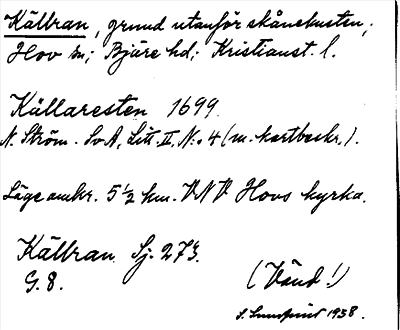 Källran, grund utanför skånekusten;
Hov sn; Bjäre hd; Kristianst. l.
Källaresten 1699.
N. Ström. SvA, Litt. II, N:o 4 (m. kartbeskr.).
Läge omkr. 5 1/2 km. VNV Hovs kyrka.
Källran Sj. 273.
G. 8.
(Vänd!)
1938.